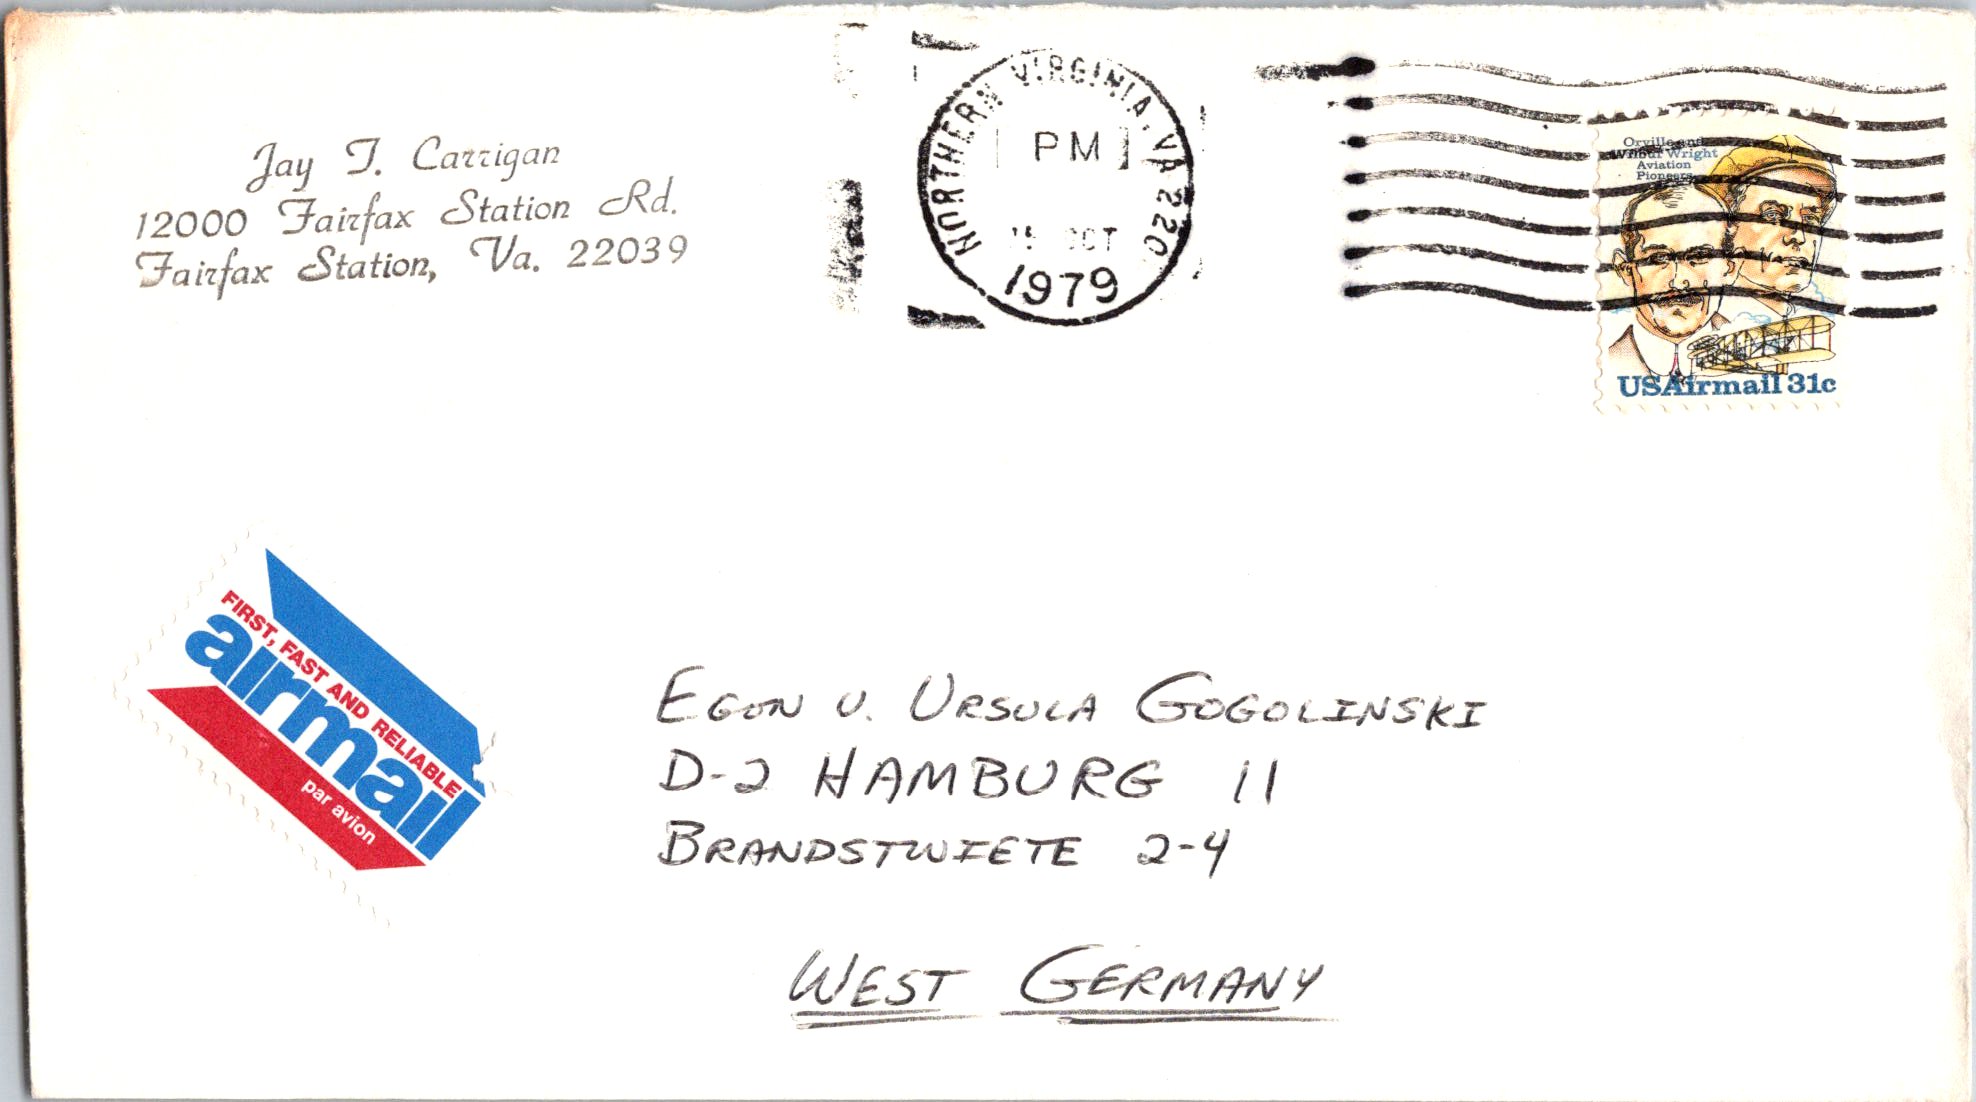 Jay T. Carrigan
12000 Fairfax Station Rd.
Fairfax Station, Va. 22039
NORTHERN VIRGINIA, VA 220
PM
OCT
1979
Orville and
Wilbur Wright
Aviation
Pioneers
USAirmail 31c
FIRST, FAST AND RELIABLE
airmail
par avion
EGON U. URSULA GOGOLINSKI
D-2 HAMBURG 11
BRANDSTWIETE 2-4
WEST GERMANY